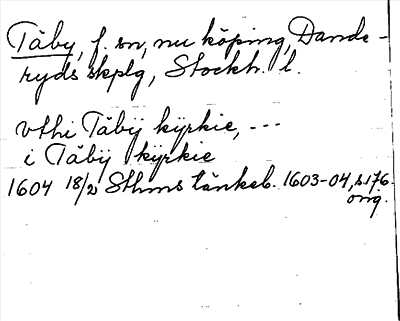 Täby, f. sn, nu köping, Dande-
ryds skplg, Stockh. l.
vthi Täbÿ kÿrkie, ---
i Täbÿ kÿrkie
1604 18/2 Sthms tänkeb. 1603-04, s. 176.
orig.